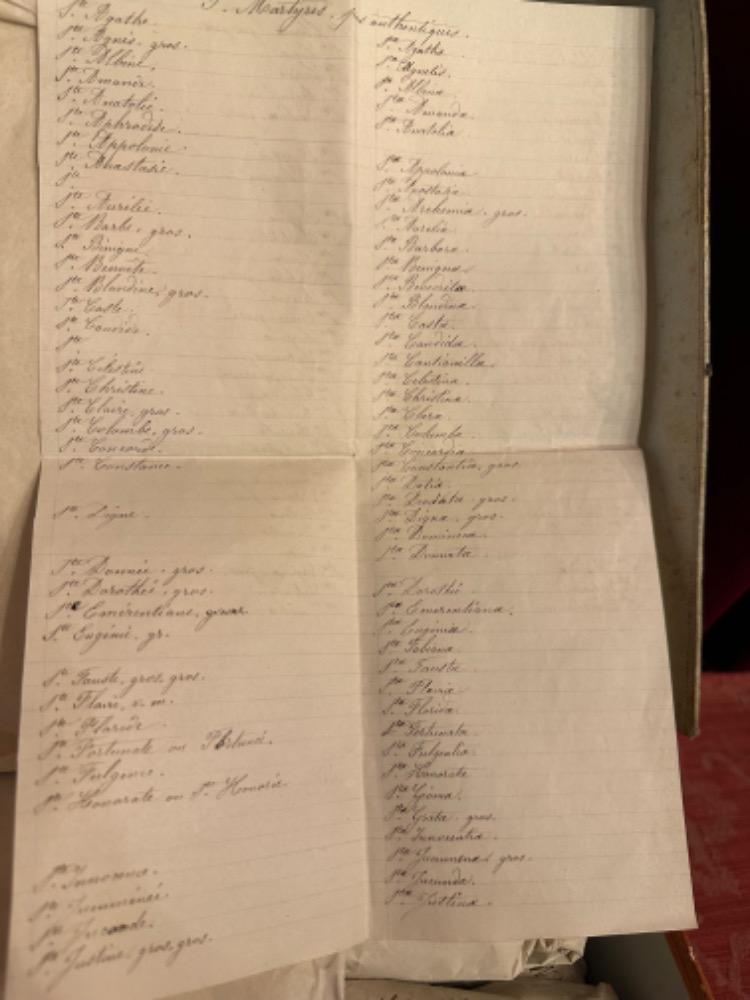 Stes Martyres. authentiques.
Ste Agathe.
Ste Agnès, gros.
Ste Albine.
Ste Amance.
Ste Anatolie.
Ste Aphrodise.
Ste Appolonie.
Ste Anastasie.
Ste
Ste Aurélie.
Ste Barbe, gros.
Ste Bénigne.
Ste Benoîte.
Ste Blandine, gros.
Ste Caste.
Ste Candide.
Ste
Ste Célestine
Ste Christine.
Ste Claire, gros.
Ste Colombe, gros.
Ste Concorde.
Ste Constance.
Ste Digne.
Ste Donnée, gros.
Ste Dorothée, gros.
Ste Emérentiane,
Ste Eugénie, gr.
Ste Fauste, gros, gros.
Ste Flavie, v. m.
Ste Floride.
Ste Fortunate ou
Ste Fulgence.
Ste Honorate ou Ste Honorée.
Ste Innocence.
Ste
Ste Juconde.
Ste Justine, gros, gros.
Sta Agatha.
Sta Agnetis.
Sta Albina.
Sta Amanda.
Sta Anatolia.
Sta Appolonia.
Sta
Sta Archemia, gros.
Sta Aurelia.
Sta Barbara.
Sta Benigna.
Sta
Sta Blandina.
Sta Casta.
Sta Candida.
Sta Cantianilla.
Sta Celestina.
Sta Christina.
Sta Clara.
Sta Columba.
Sta Concordia.
Sta Constantia, gros.
Sta
Sta Deodata, gros.
Sta Digna, gros.
Sta Dominica.
Sta Donata.
Sta
Sta Emerentiana.
Sta Eugenia.
Sta Fabiana.
Sta Fausta.
Sta Flavia.
Sta Florida.
Sta Fortunata.
Sta Fulgentia.
Sta Honorata.
Sta
Sta Grata, gros.
Sta Innocentia.
Sta gros.
Sta Jucunda.
Sta Justina.